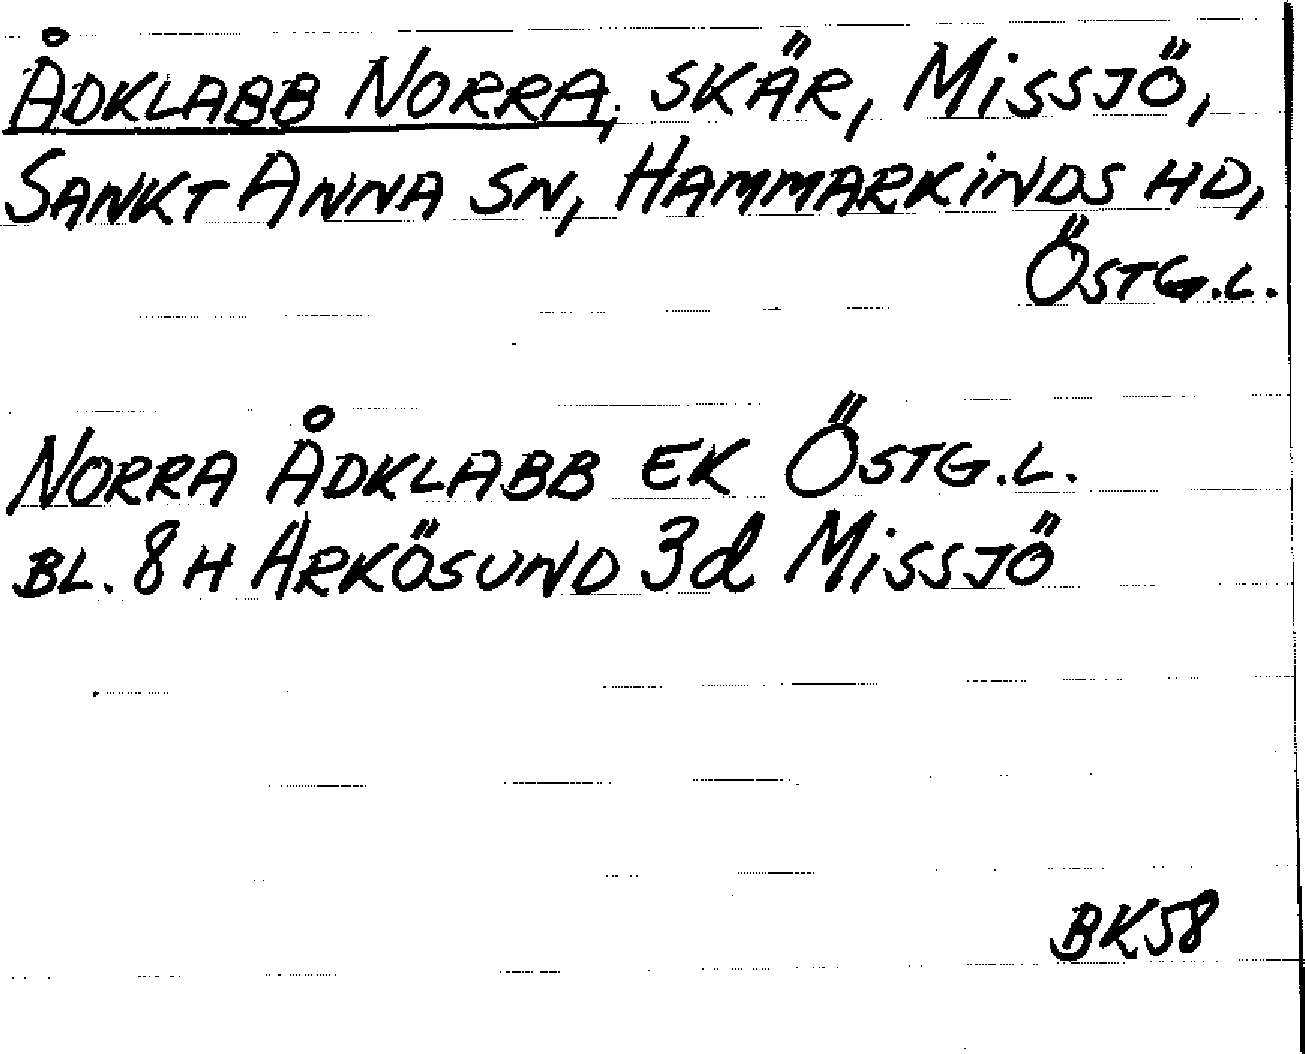 ÅDKLABB NORRA, SKÄR, MISSJÖ,
SANKT ANNA SN, HAMMARKINDS HD,
ÖSTG.L.
NORRA ÅDKLABB EK ÖSTG.L.
BL. 8H ARKÖSUND 3d MISSJÖ
BK58